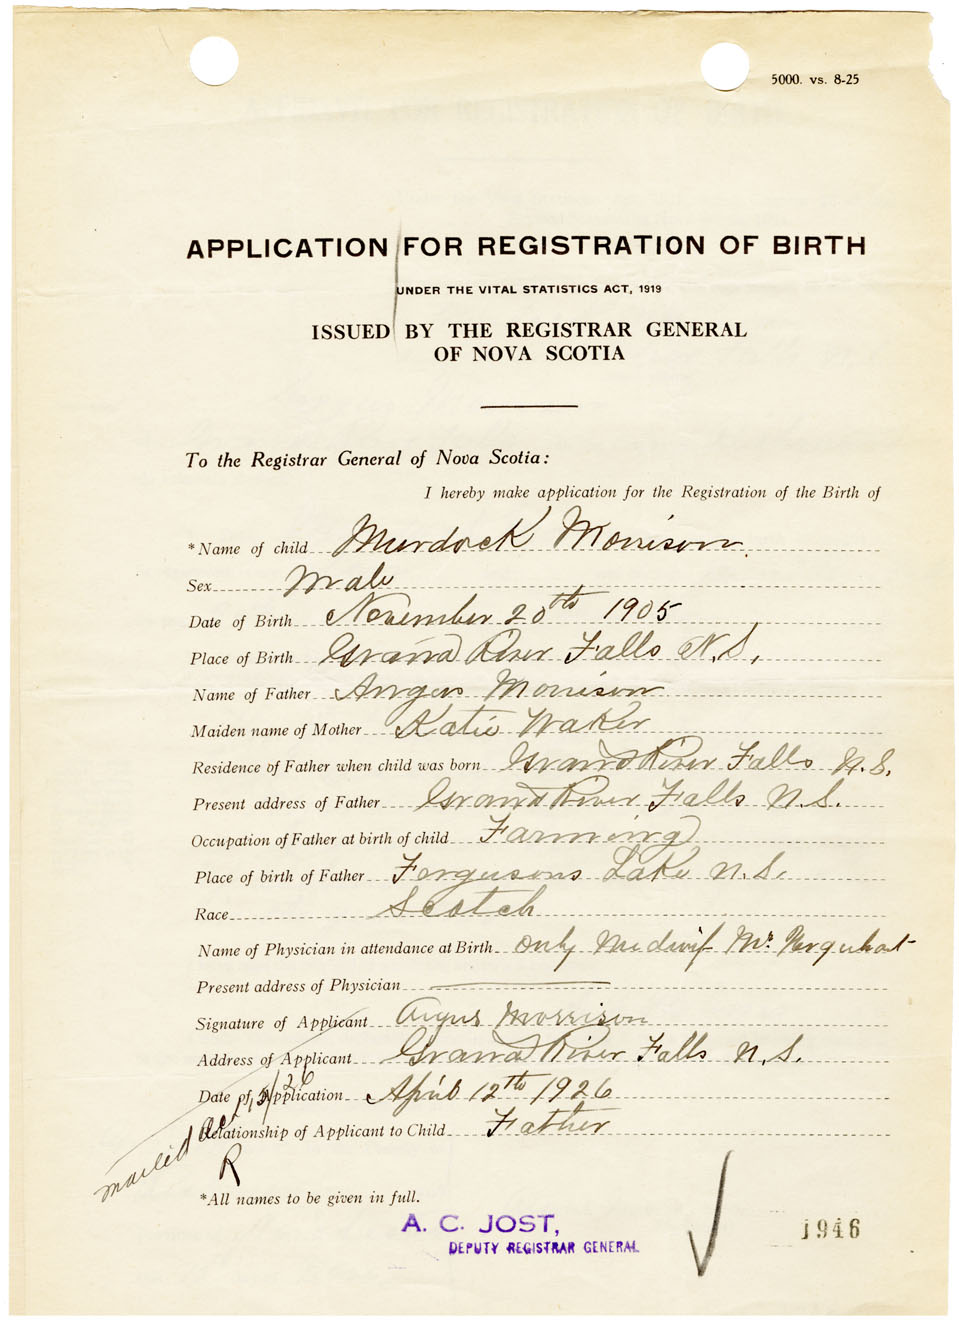 5000. vs. 8-25
APPLICATION FOR REGISTRATION OF BIRTH
UNDER THE VITAL STATISTICS ACT, 1919
ISSUED BY THE REGISTRAR GENERAL
OF NOVA SCOTIA
To the Registrar General of Nova Scotia:
I hereby make application for the Registration of the Birth of
*Name of child Murdock Morrison
Sex Male
Date of Birth November 20th 1905
Place of Birth Grand River Falls N.S.
Name of Father Angus Morrison
Maiden name of Mother Katie Waker
Residence of Father when child was born Grand River Falls N.S.
Present address of Father Grand River Falls N.S.
Occupation of Father at birth of child Farming
Place of birth of Father Fergusons Lake N.S.
Race Scotch
Name of Physician in attendance at Birth only Midwif
Present address of Physician
Signature of Applicant Angus Morrison
Address of Applicant Grand River Falls N.S.
Date of Application April 12th 1926
Relationship of Applicant to Child Father
mailed
R
*All names to be given in full.
A. C. JOST,
DEPUTY REGISTRAR GENERAL
1946